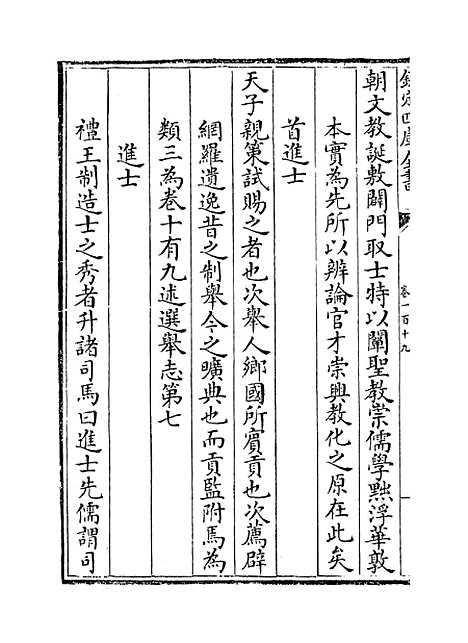 欽定四庫全書
卷一百十九
朝文教誕敷闢門取士特以闡聖教崇儒學黜浮華敦
本實為先所以辨論官才崇興教化之原在此矣
首進士
天子親策試賜之者也次舉人鄉國所賓貢也次薦辟
網羅遺逸昔之制舉今之曠典也而貢監附焉為
類三為卷十有九述選舉志第七
進士
禮王制造士之秀者升諸司馬曰進士先儒謂司